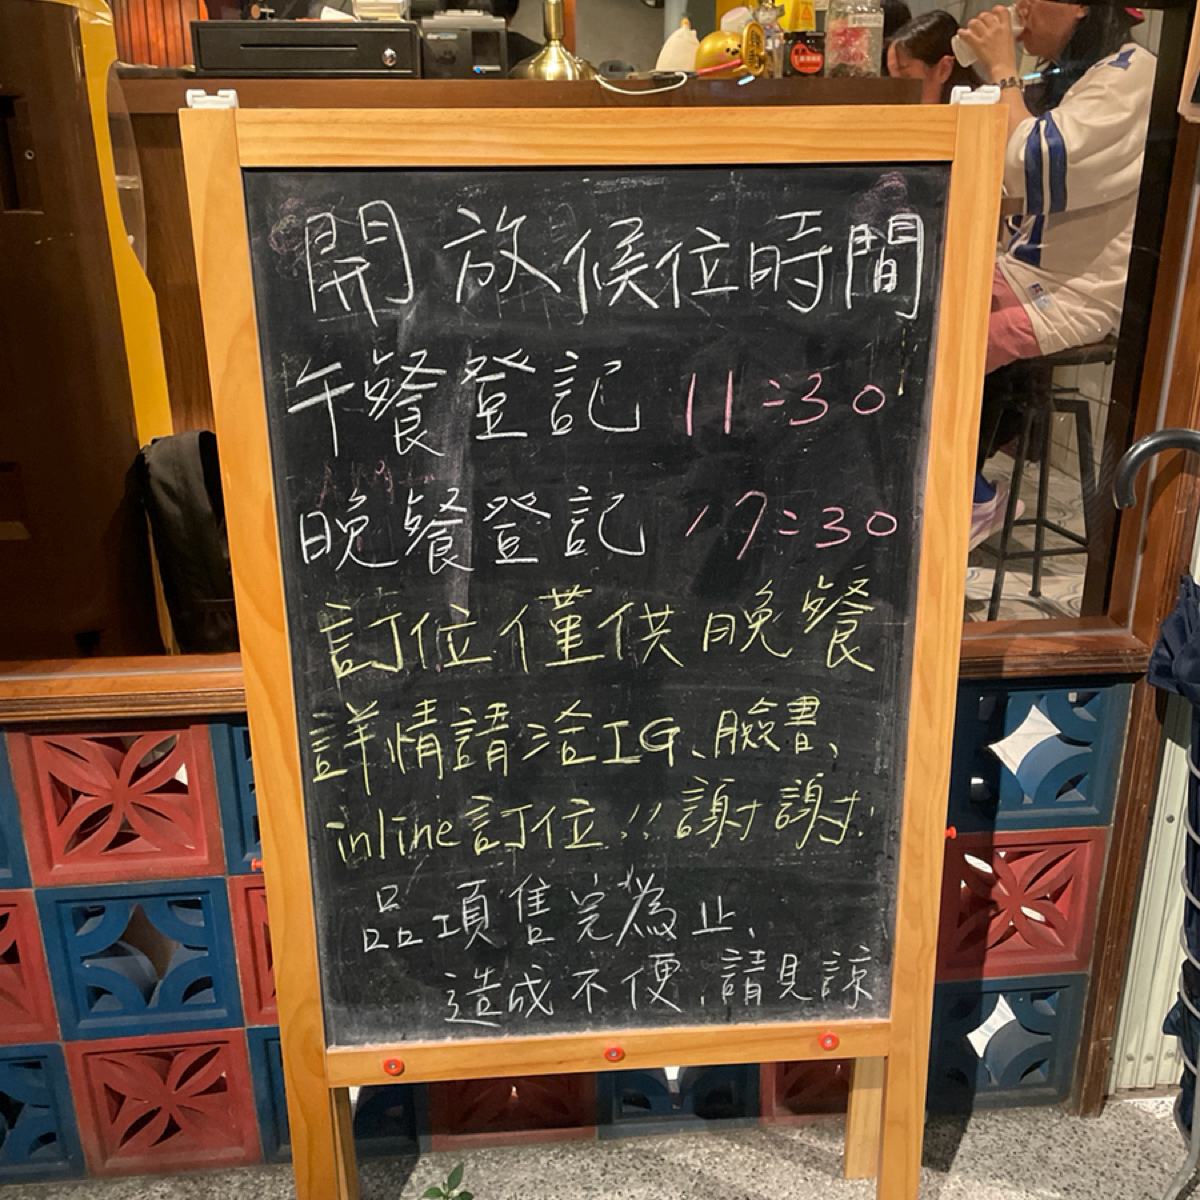 開放候位時間
午餐登記 11:30
晚餐登記 17:30
訂位僅供晚餐
詳情請洽IG、臉書、
inline訂位!! 謝謝!
品項售完為止、
造成不便、請見諒